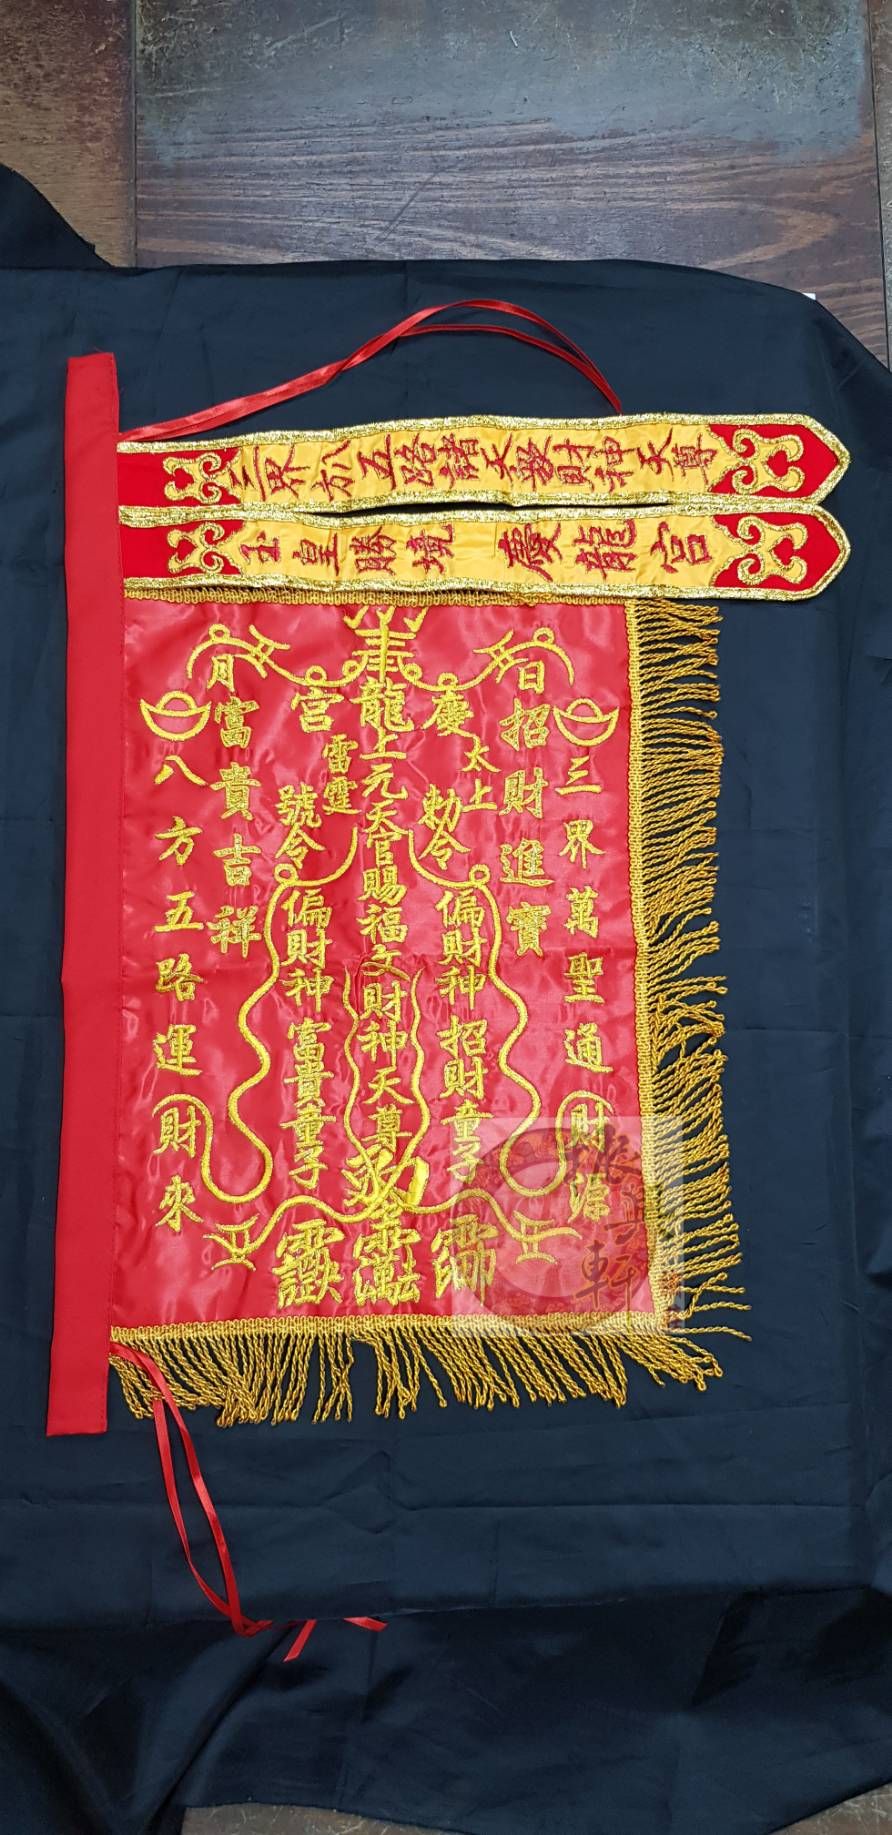 三界扒五路諸天發財神天尊
玉皇勝境 慶龍宮
慶龍宮
日
月
三界萬聖通財源
招財進寶
太上
勅令
偏財神招財童子
上元天官賜福文財神天尊
雷霆
號令
偏財神富貴童子
富貴吉祥
八方五路運財來
軒